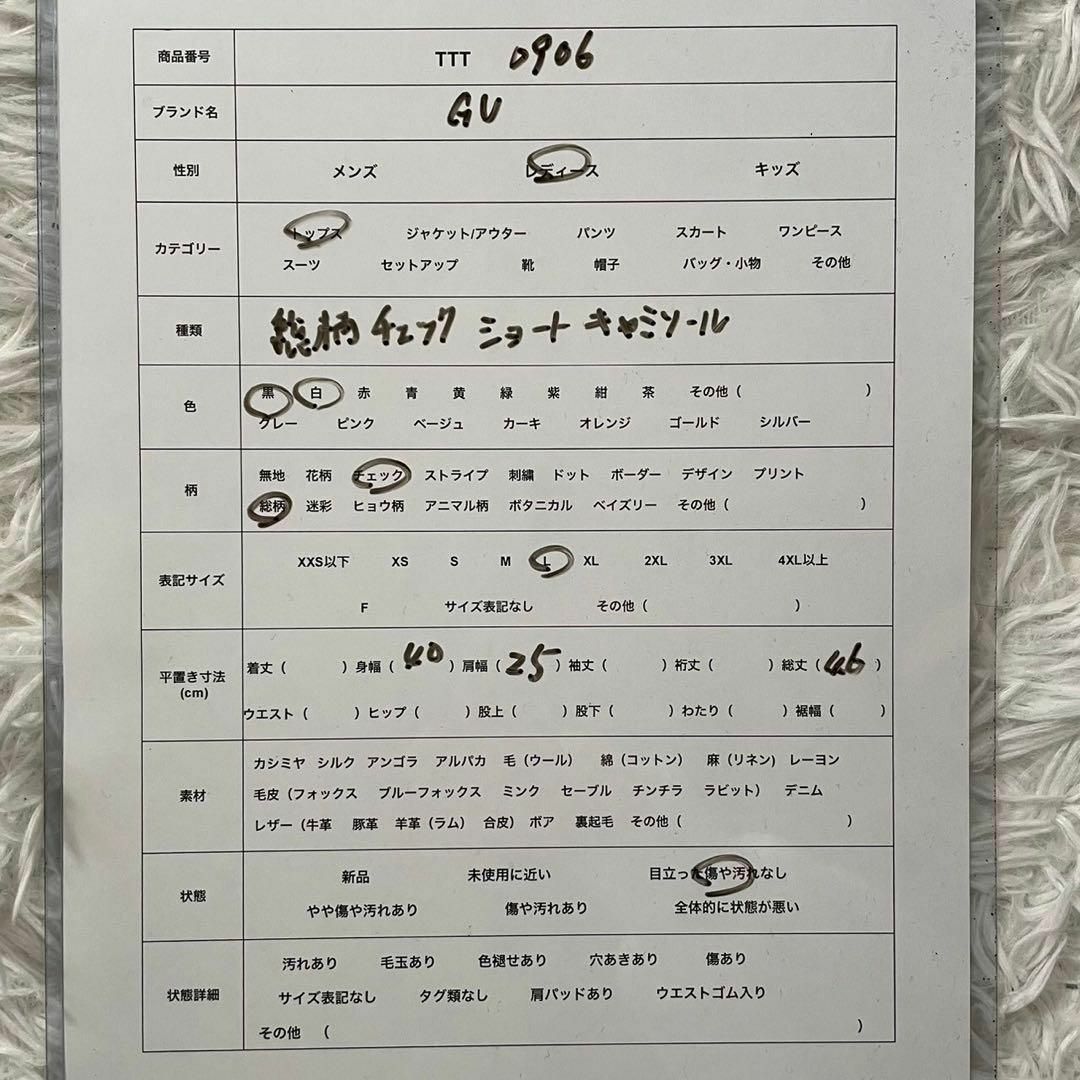 商品番号 TTT 0906
ブランド名 GU
性別 メンズ レディース キッズ
カテゴリー トップス ジャケット/アウター パンツ スカート ワンピース
スーツ セットアップ 靴 帽子 バッグ・小物 その他
種類 総柄 チェック ショート キャミソール
色 黒 白 赤 青 黄 緑 紫 紺 茶 その他（ ）
グレー ピンク ベージュ カーキ オレンジ ゴールド シルバー
柄 無地 花柄 チェック ストライプ 刺繍 ドット ボーダー デザイン プリント
総柄 迷彩 ヒョウ柄 アニマル柄 ボタニカル ベイズリー その他（ ）
表記サイズ XXS以下 XS S M L XL 2XL 3XL 4XL以上
F サイズ表記なし その他（ ）
平置き寸法 (cm) 着丈（ ）身幅（ 40 ）肩幅（ 25 ）袖丈（ ）裄丈（ ）総丈（ 46 ）
ウエスト（ ）ヒップ（ ）股上（ ）股下（ ）わたり（ ）裾幅（ ）
素材 カシミヤ シルク アンゴラ アルパカ 毛（ウール） 綿（コットン） 麻（リネン） レーヨン
毛皮（フォックス ブルーフォックス ミンク セーブル チンチラ ラビット） デニム
レザー（牛革 豚革 羊革（ラム） 合皮） ボア 裏起毛 その他（ ）
状態 新品 未使用に近い 目立った傷や汚れなし
やや傷や汚れあり 傷や汚れあり 全体的に状態が悪い
状態詳細 汚れあり 毛玉あり 色褪せあり 穴あきあり 傷あり
サイズ表記なし タグ類なし 肩パッドあり ウエストゴム入り
その他 （ ）